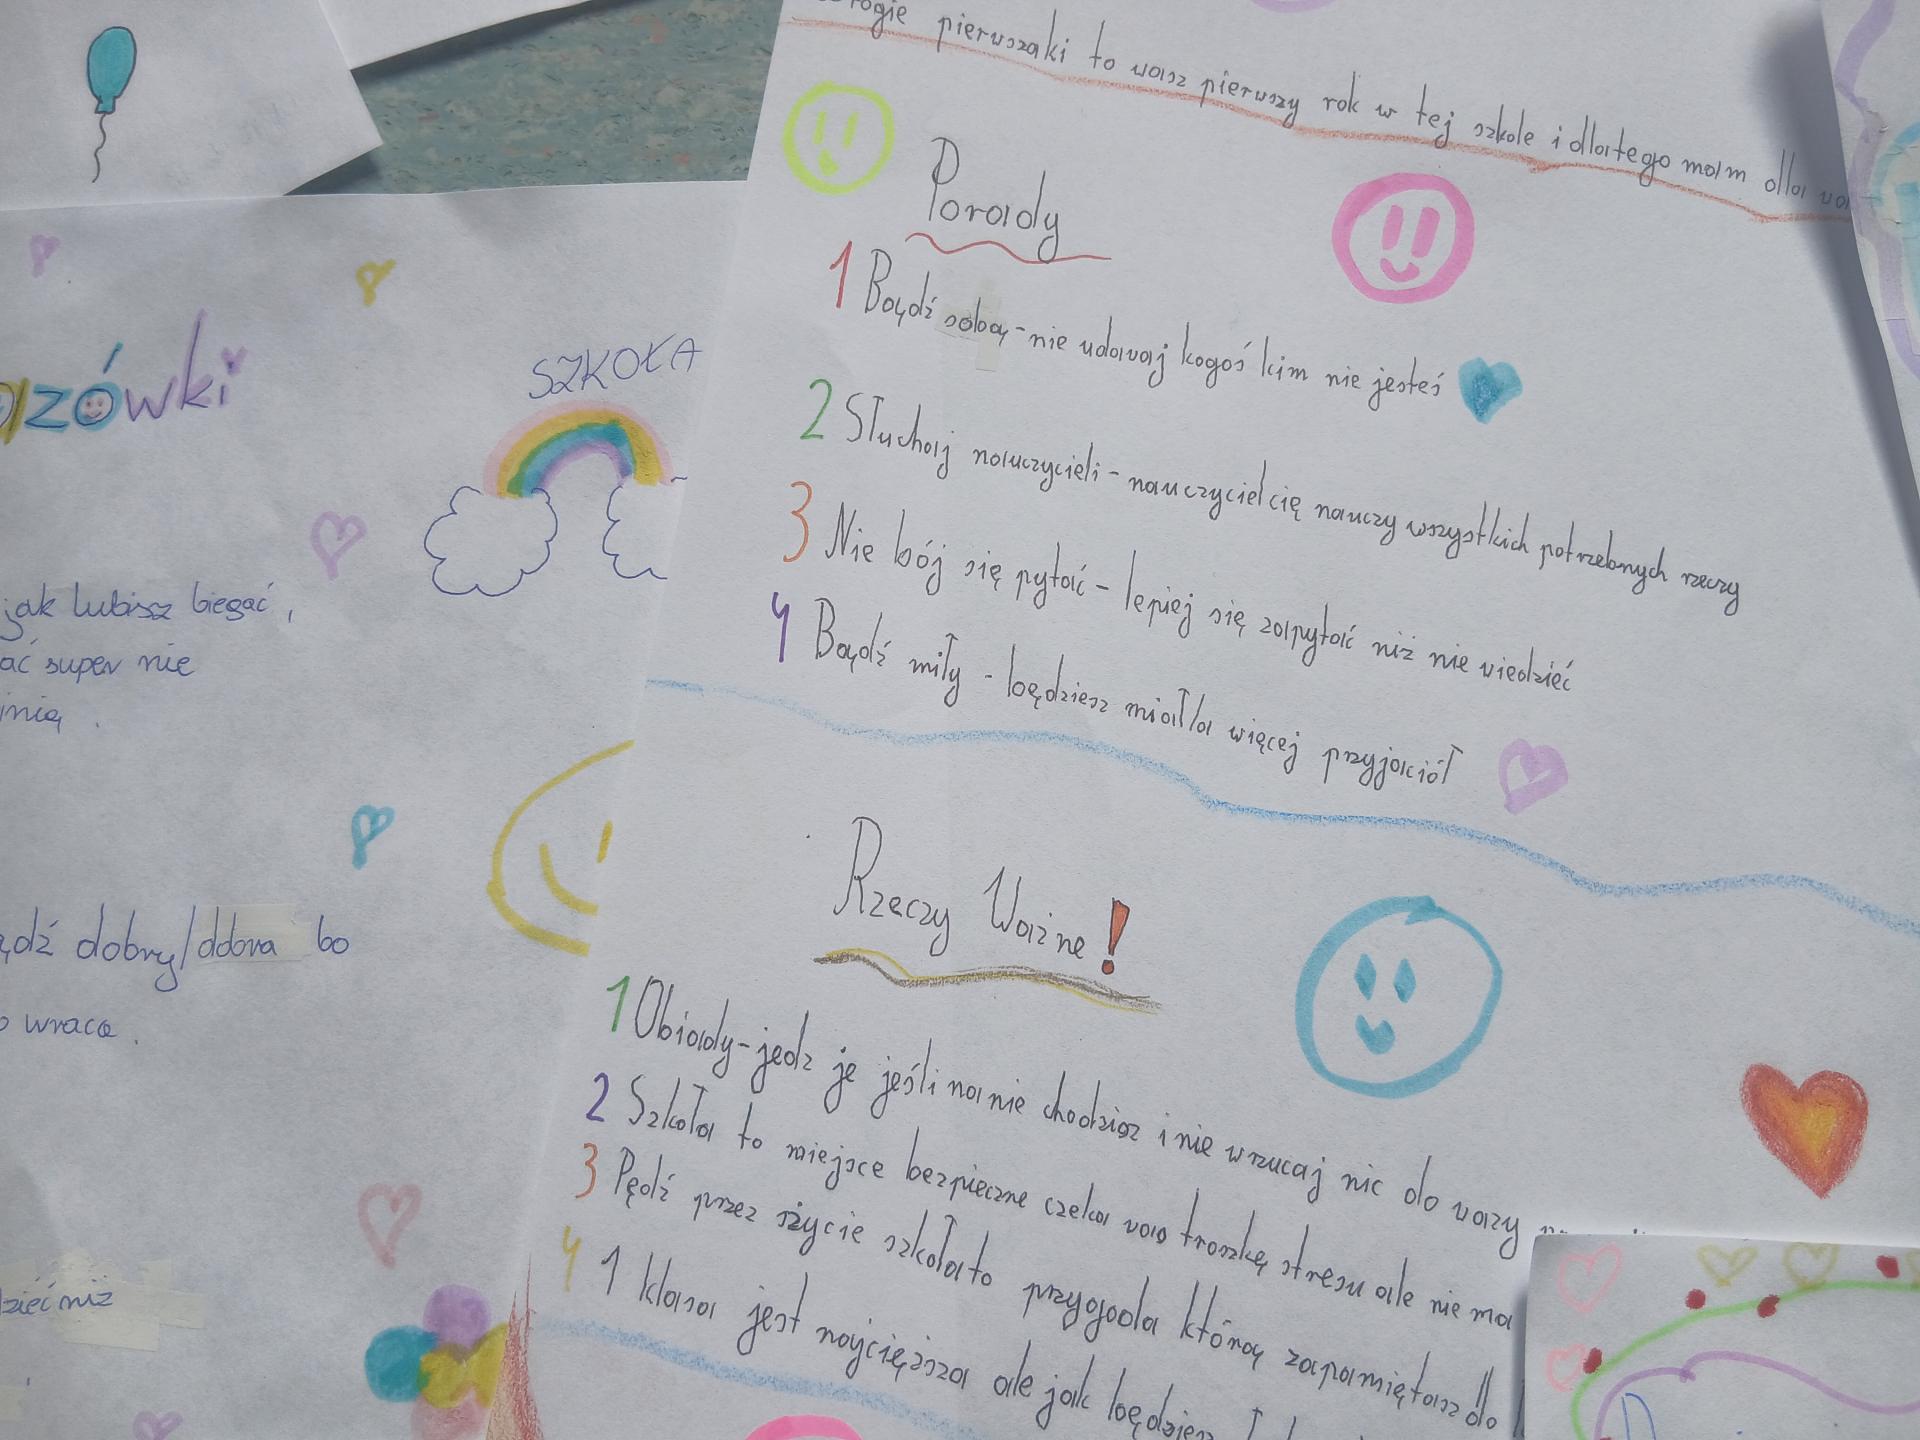 pierwszaki to wasz pierwszy rok w tej szkole i dlatego mam dla
Porady
1 Bądź sobą - nie udawaj kogoś kim nie jesteś
2 Słuchaj nauczycieli - nauczyciel cię nauczy wszystkich potrzebnych rzeczy
3 Nie bój się pytać - lepiej się zapytać niż nie wiedzieć
4 Bądź miły - będziesz miał/ła więcej przyjaciół
Rzeczy Ważne!
1 Obiady - jedz je jeśli na nie chodzisz i nie wrzucaj nic do wazy
2 Szkoła to miejsce bezpieczne czeka was troszkę stresu ale nie ma
3 Pędź przez życie szkoła to przygoda którą zapamiętasz do
4 1 klasa jest najcięższa ale jak będziesz
SZKOŁA
jak lubisz biegać,
super nie
dobry/dobra bo
wraca.
niż